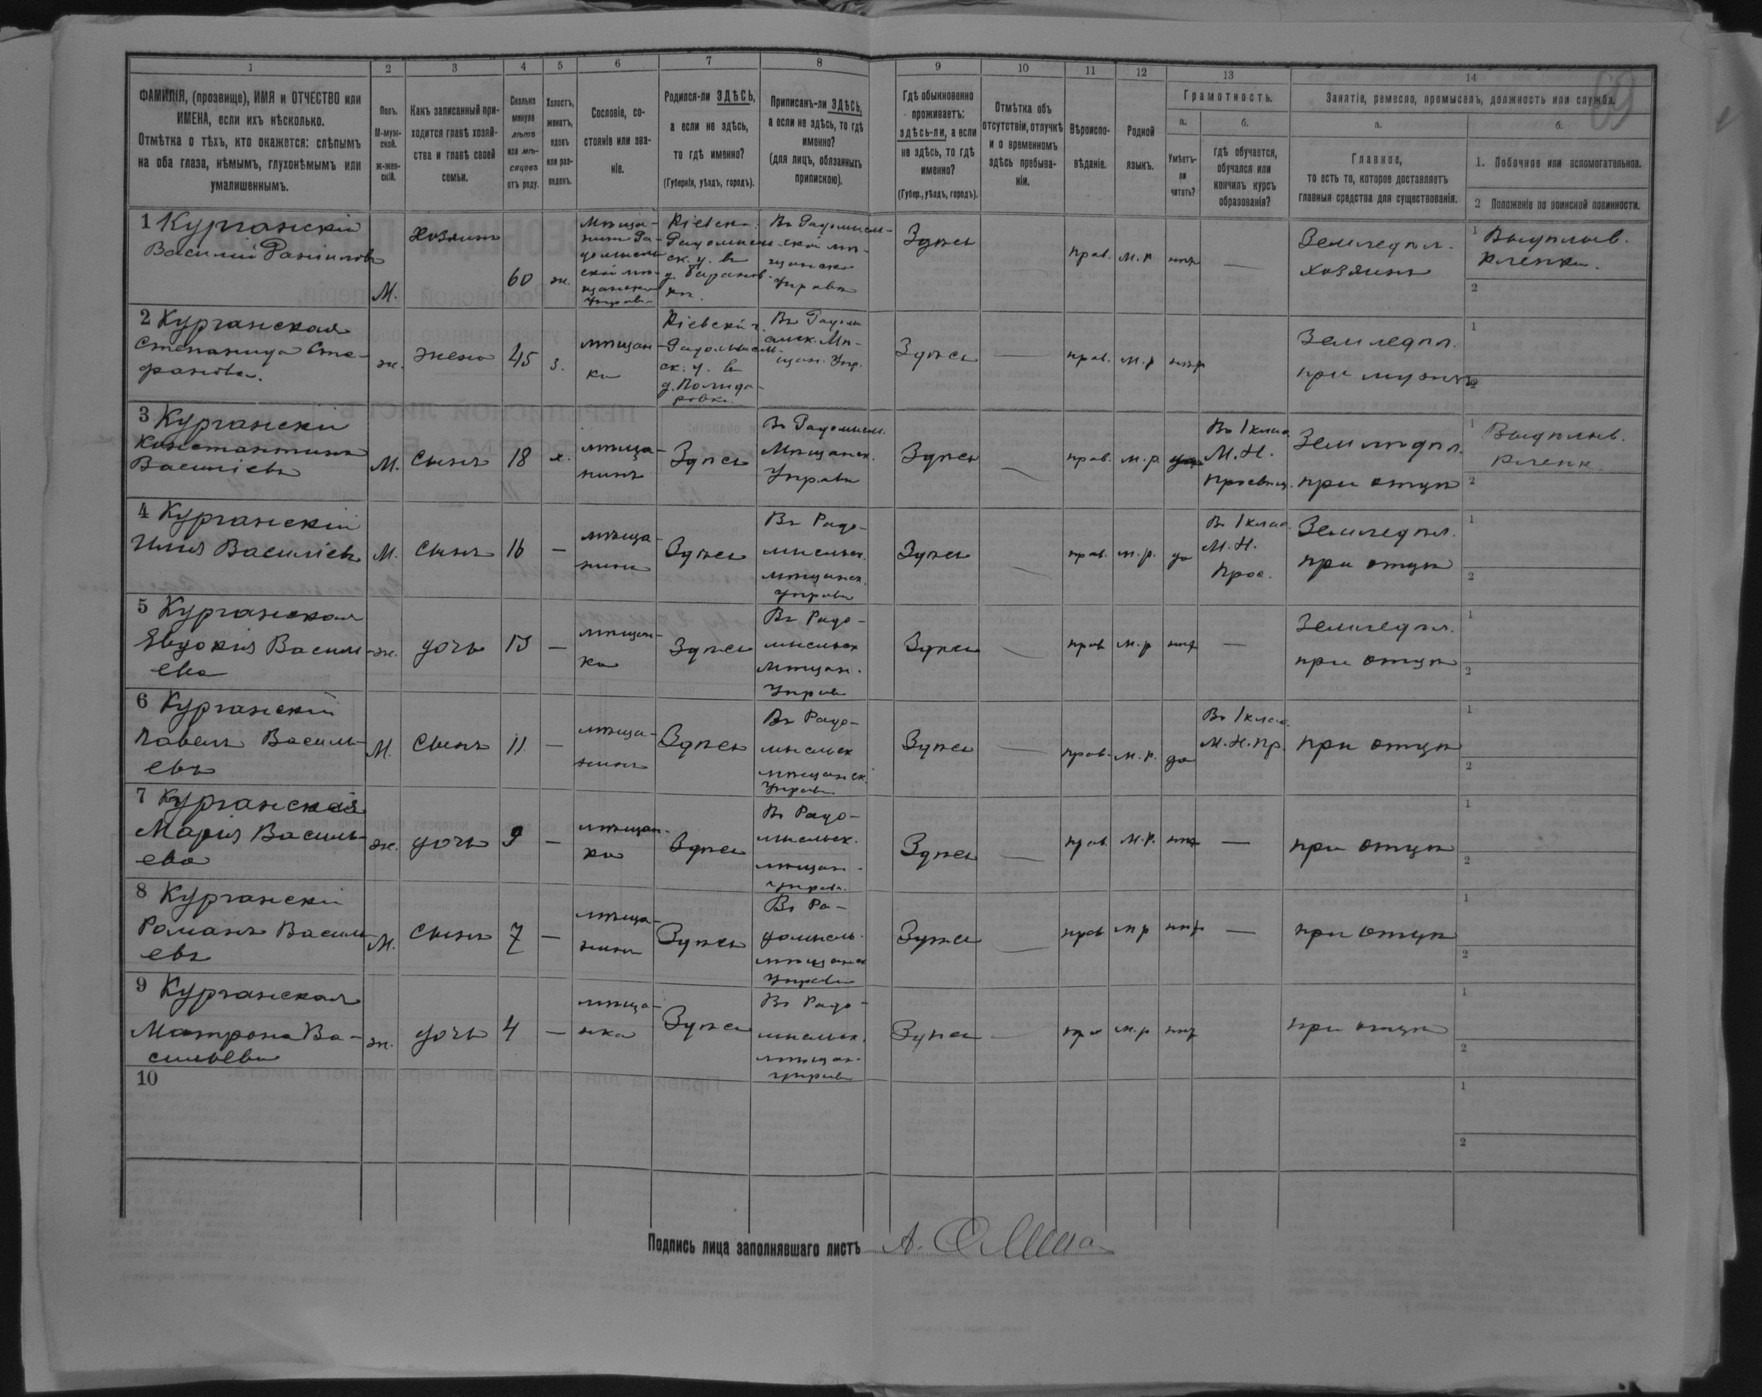 1 2 3 4 5 6 7 8 9 10 11 12 13 14
69
ФАМИЛІЯ, (прозвище), ИМЯ и ОТЧЕСТВО или
ИМЕНА, если ихъ нѣсколько.
Отмѣтка о тѣхъ, кто окажется: слѣпымъ
на оба глаза, нѣмымъ, глухонѣмымъ или
умалишеннымъ.
Полъ.
М-муж-
ской.
ж-жен-
скій.
Какъ записанный при-
ходится главѣ хозяй-
ства и главѣ своей
семьи.
Сколько
минуло
лѣтъ
или мѣ-
сяцевъ
отъ роду.
Холостъ,
женатъ,
вдовъ
или раз-
веденъ.
Сословіе, со-
стояніе или зва-
ніе.
Родился-ли ЗДѢСЬ,
а если не здѣсь,
то гдѣ именно?
(Губернія, уѣздъ, городъ).
Приписанъ-ли ЗДѢСЬ,
а если не здѣсь, то гдѣ
именно?
(для лицъ, обязанныхъ
припискою).
Гдѣ обыкновенно
проживаетъ:
здѣсь-ли, а если
не здѣсь, то гдѣ
именно?
(Губер., уѣздъ, городъ).
Отмѣтка объ
отсутствіи, отлучкѣ
и о временномъ
здѣсь пребыва-
ніи.
Вѣроиспо-
вѣданіе.
Родной
языкъ.
Грамотность.
а.
Умѣетъ-
ли
читать?
б.
гдѣ обучается,
обучался или
кончилъ курсъ
образованія?
Занятіе, ремесло, промыселъ, должность или служба.
а.
Главное,
то есть то, которое доставляетъ
главныя средства для существованія.
б.
1. Побочное или вспомогательное.
2 Положеніе по воинской повинности.
1 Курганскій
Василій Даніиловъ
М.
Хозяинъ
60
ж.
Здѣсь
прав.
м.р.
нѣт
—
Земледѣл.
хозяинъ
1
2
2 Курганская
Степанида Сте-
фанова.
ж.
жена
45
з.
мѣщан-
ка
Кіевскій г.
Здѣсь
—
прав.
м.р
нѣт
Земледѣл.
при мужѣ
1
2
3 Курганскій
Константинъ
Василіевъ
М.
сынъ
18
х.
мѣща-
нинъ
Здѣсь
Въ Радомысл.
Мѣщанск.
Управѣ
Здѣсь
—
прав.
м.р.
да
Въ 1 клас.
М. Н.
Просвѣщ.
Земледѣл.
при отцѣ
1
2
4 Курганскій
Илія Василіевъ
М.
сынъ
16
—
мѣща-
нинъ
Здѣсь
Въ Радо-
мысльск.
мѣщанск.
управѣ
Здѣсь
—
прав.
м.р.
да
Въ 1 клас.
М. Н.
Прос.
Земледѣл.
при отцѣ
1
2
5 Курганская
Явдокія Василь-
ева
ж.
дочь
—
мѣщан-
ка
Здѣсь
Въ Радо-
мысльск
мѣщан.
Управѣ
Здѣсь
—
прав
м.р
нѣт
—
Земледѣл.
при отцѣ
1
2
6 Курганскій
Павелъ Василь-
евъ
М.
сынъ
11
—
мѣща-
нинъ
Здѣсь
Въ Радо-
мысльск
мѣщанск.
Управѣ
Здѣсь
—
прав.
м.р.
да
Въ 1 клас.
М.Н.Пр.
при отцѣ
1
2
7 Курганская
Марія Василь-
ева
ж.
дочь
9
—
мѣщан-
ка
Здѣсь
Въ Радо-
мысльск.
мѣщан-
управѣ.
Здѣсь
—
прав
м.р.
нѣт
—
при отцѣ
1
2
8 Курганскій
Романъ Василь-
евъ
М.
сынъ
7
—
мѣща-
нинъ
Здѣсь
Въ Ра-
домысль.
мѣщанск
Управѣ
Здѣсь
—
прав
м р
нѣт
—
при отцѣ
1
2
9 Курганская
Матрона Ва-
сильева
ж.
дочь
4
—
мѣща-
нка
Здѣсь
Въ Радо-
мысльск.
мѣщан-
управѣ
Здѣсь
—
пра
м.р
нѣт
при отцѣ
1
2
10
1
2
Подпись лица заполнявшаго листъ